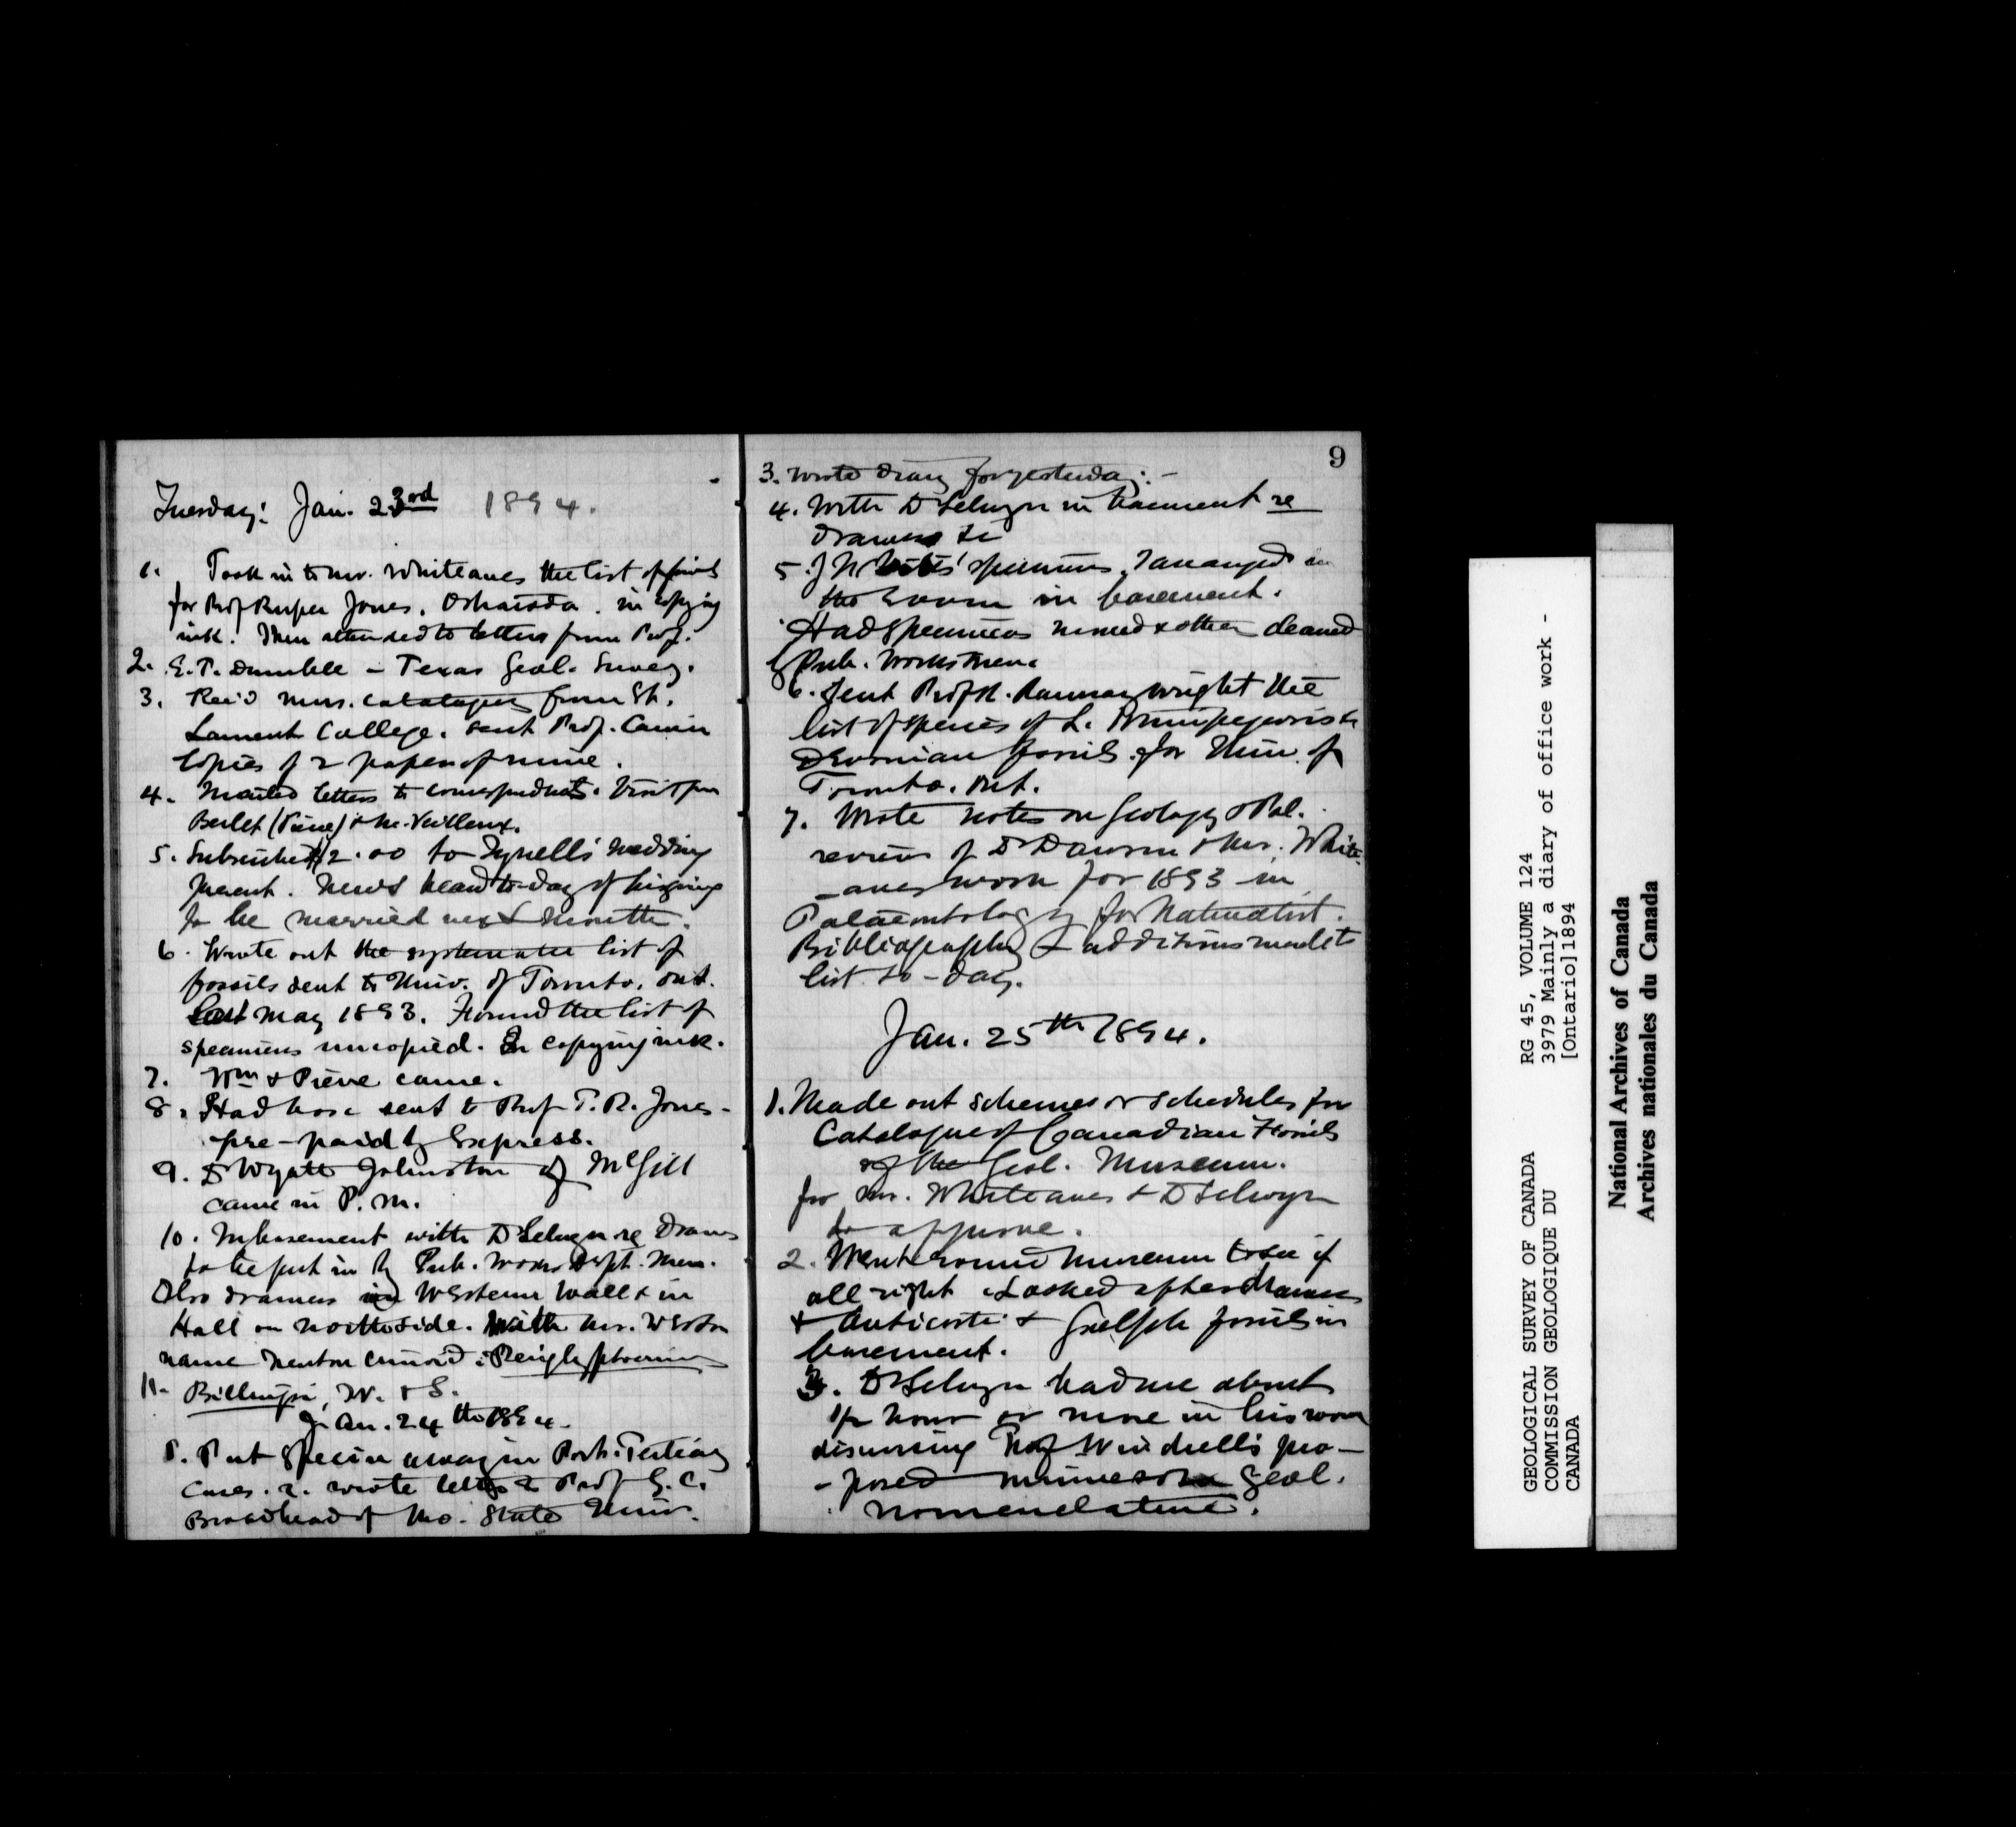 Tuesday: Jan. 23rd 1894.
1. Took in to Mr. Whiteaves the list of fossils
for Prof Rupert Jones. Ostracoda. in copying
ink. Then attended to letters from Prof.
2. E. T. Dumble - Texas Geol. Survey.
3. Rec'd Mus. catalogues from St.
Laurent College. Sent Prof. Carrier
copies of 2 papers of mine.
4. Mailed letters to correspondents. Visit from
(Pierre) & Mr. Veilleux.
5. Subscribed $2.00 to Tyrrell's wedding
present. News heard to-day of his going
to be married next month.
6. Wrote out the systematic list of
fossils sent to Univ. of Toronto, Ont.
last May 1893. Found the list of
specimens uncopied. In copying ink.
7. Wm & Pierre came.
8. Had box sent to Prof T. R. Jones -
pre-paid by Express.
9. Dr Wyatt Johnston of McGill
came in P. M.
10. In basement with Dr Selwyn re drawers
to be put in by Pub. Works Dept. men.
Also drawers in Western Wall & in
Hall on north side. With Mr. Weston
name Trenton crinoid:
11. Billingsi, W. & S.
Jan. 24th 1894.
1. Put specim away in Post-Tertiary
cases. 2. wrote letter to Prof G. C.
Broadhead of Mo. State Univ.
9
3. Wrote diary for yesterday: -
4. With Dr Selwyn in basement re
drawers &c
5. specimens, I arranged in
the room in basement.
Had specimens moved & others cleaned
by Pub. Works men.
6. Sent Prof R. Ramsay Wright the
list of species of L. Winnipegosis &
Devonian fossils for Univ. of
Toronto. Ont.
7. Wrote notes on Geology & Pal.
review of Dr Dawson & Mr. White-
-aves work for 1893 in
Palaeontology for Naturalist.
Bibliography & additions made to
list to-day.
Jan. 25th 1894.
1. Made out schemes or schedules for
Catalogue of Canadian Fossils
of the Geol. Museum.
for Mr. Whiteaves & Dr Selwyn
to approve.
2. Went round museum to see if
all right & looked after drawers
& Anticosti & Guelph fossils in
basement.
3. Dr Selwyn had me about
1/2 hour or more in his room
discussing Prof Winchell's pro-
-posed Minnesota Geol.
nomenclature.
GEOLOGICAL SURVEY OF CANADA
COMMISSION GEOLOGIQUE DU
CANADA
RG 45, VOLUME 124
3979 Mainly a diary of office work -
[Ontario]1894
National Archives of Canada
Archives nationales du Canada